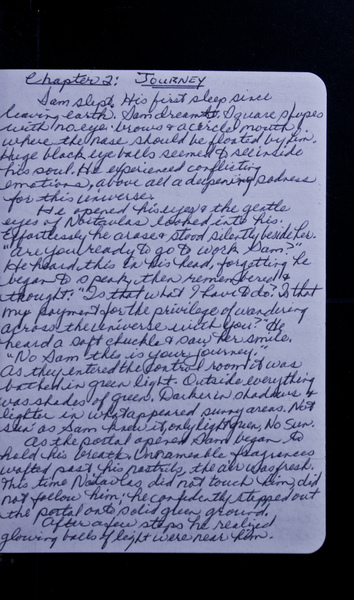 Chapter 2: JOURNEY
Sam slept. His first sleep since
leaving earth. Sam dreamt. Square shapes
with no eye brows & a circle mouth,
where the nose should be floated by him.
Huge black eye balls seemed to see inside
his soul. He experienced conflicting
emotions, above all a deepening sadness
for this universe.
He opened his eyes & the gentle
eyes of looked into his.
Effortlessly he arose & stood silently beside her.
"Are you ready to go to work Sam?"
He heard this in his head, forgetting he
began to speak, then remembered &
thought. "Is that what I have to do? Is that
my payment for the privilege of wandering
across the universe with you?" He
heard a soft chuckle & saw her smile.
"No Sam this is your journey."
As they entered the control room it was
bathed in green light. Outside everything
was shades of green. Darker in shadows &
lighter in what appeared sunny areas. Not
sun as Sam knew it, only light green, No Sun.
As the portal opened Sam began to
hold his breath. Unnameable fragrances
wafted past his nostrils, the air was fresh.
This time did not touch him, did
not follow him; he confidently stepped out
the portal onto solid green ground.
After a few steps he realized
glowing balls of light were near him.